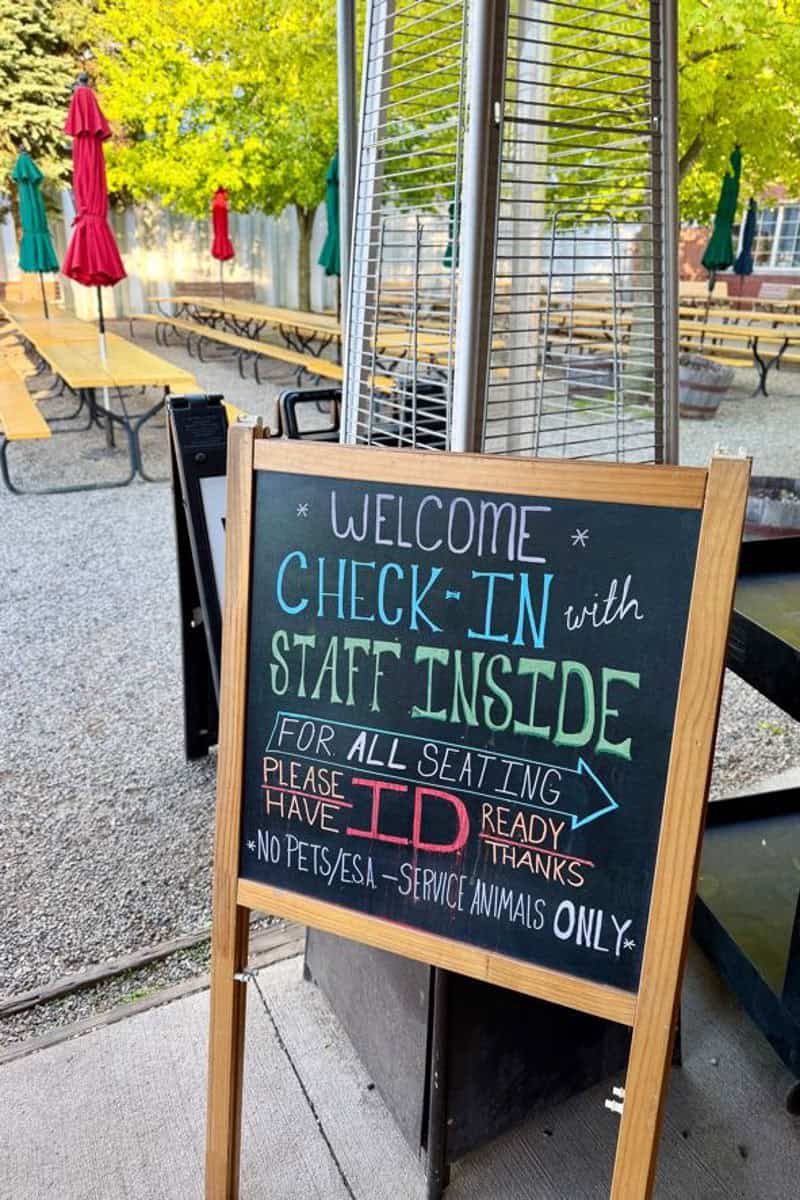 * WELCOME *
CHECK-IN with
STAFF INSIDE
FOR ALL SEATING
PLEASE HAVE ID READY THANKS
*NO PETS/ESA - SERVICE ANIMALS ONLY*